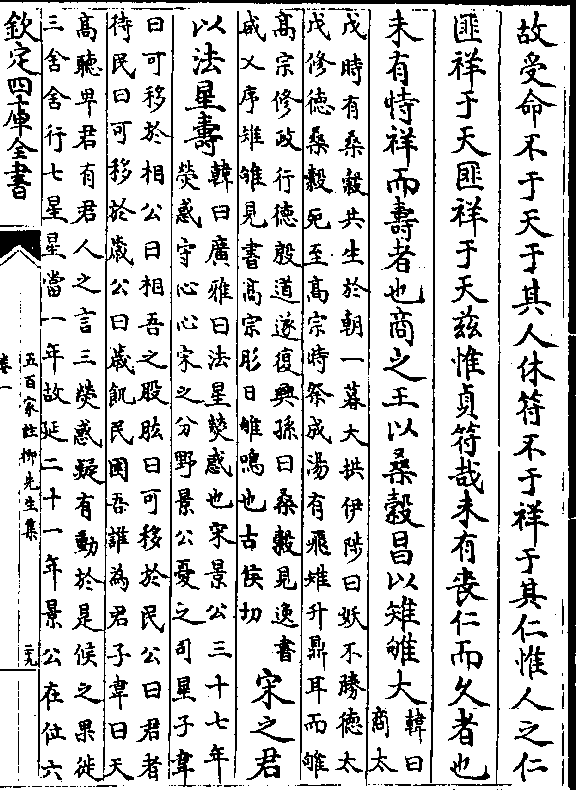 故受命不于天于其人休符不于祥于其仁惟人之仁
匪祥于天匪祥于天兹惟貞符哉未有喪仁而久者也
未有恃祥而壽者也商之王以桑榖昌以雉雊大韓曰
商太
戊時有桑榖共生於朝一暮大拱伊陟曰妖不勝德太
戊修德桑榖死至髙宗時祭成湯有飛雉升鼎耳而雊
髙宗修政行德殷道遂復興孫曰桑榖見逸書
咸乂序雉雊見書髙宗肜日雊鳴也古侯切
宋之君
以法星壽
韓曰廣雅曰法星熒惑也宋景公三十七年
熒惑守心心宋之分野景公憂之司星子韋
曰可移於相公曰相吾之股肱曰可移於民公曰君者
待民曰可移於歲公曰歲飢民困吾誰為君子韋曰天
髙聽卑君有君人之言三熒惑疑有動於是候之果徙
三舍舍行七星星當一年故延二十一年景公在位六
欽定四庫全書
五百家註栁先生集
卷一
二九